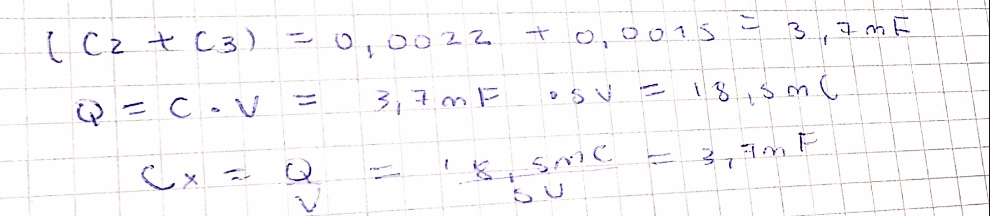 (C2 + C3) = 0,0022 + 0,0015 = 3,7mF
Q = C . V = 3,7mF . 5V = 18,5mC
Cx = Q/V = 18,5mC/5V = 3,7mF